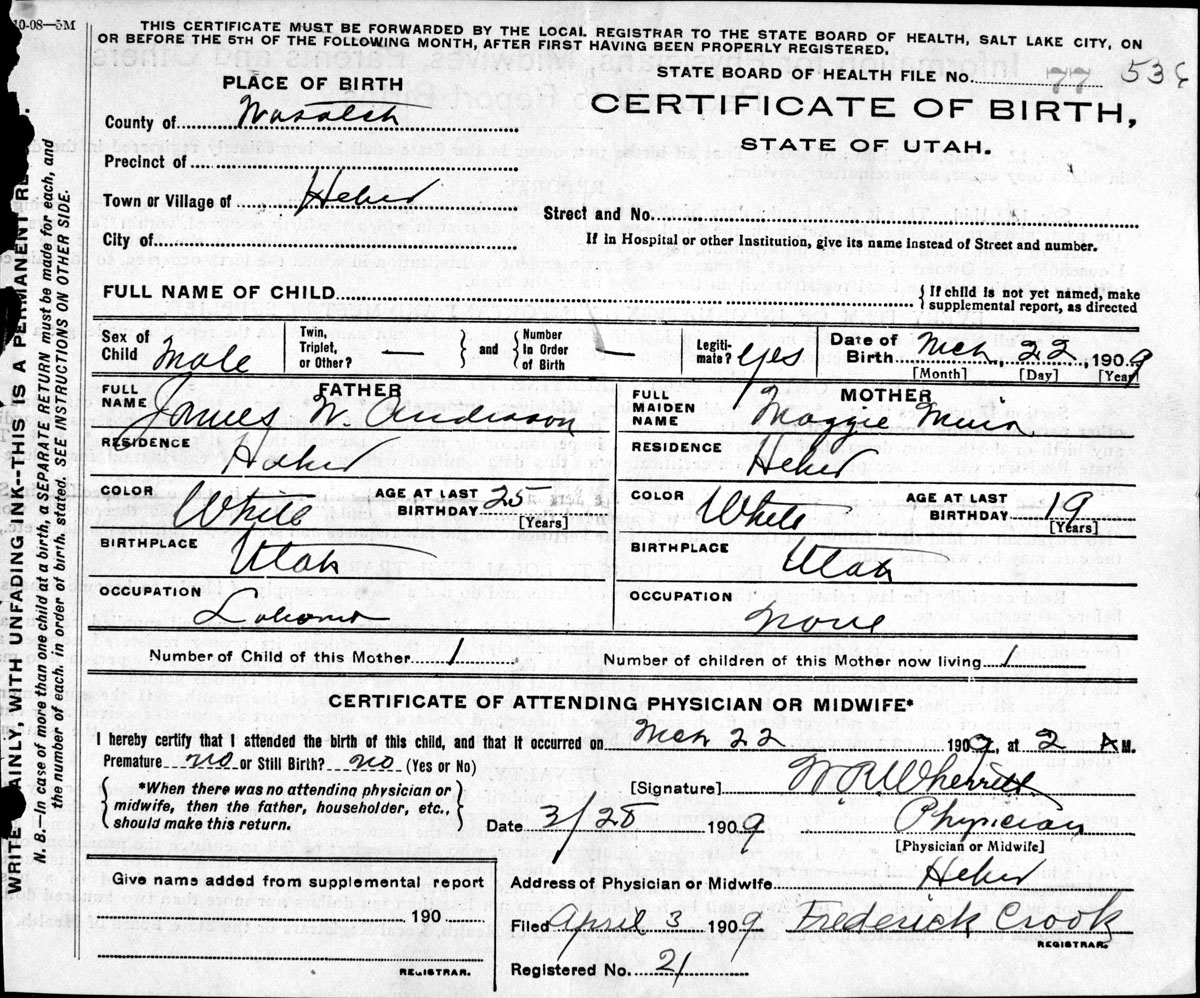 10-08—5M
THIS CERTIFICATE MUST BE FORWARDED BY THE LOCAL REGISTRAR TO THE STATE BOARD OF HEALTH, SALT LAKE CITY, ON
OR BEFORE THE 5TH OF THE FOLLOWING MONTH, AFTER FIRST HAVING BEEN PROPERLY REGISTERED.
STATE BOARD OF HEALTH FILE No. 77 536
PLACE OF BIRTH
CERTIFICATE OF BIRTH,
STATE OF UTAH.
County of Wasatch
Precinct of
Town or Village of Heber
Street and No.
City of
If in Hospital or other Institution, give its name instead of Street and number.
FULL NAME OF CHILD { If child is not yet named, make
supplemental report, as directed
Sex of Child Male
Twin, Triplet, or Other? — } and { Number In Order of Birth —
Legiti- mate? Yes
Date of Birth Mch 22 1909
[Month] [Day] [Year]
FATHER
FULL NAME James W. Anderson
RESIDENCE Heber
COLOR White AGE AT LAST BIRTHDAY 25 [Years]
BIRTHPLACE Utah
OCCUPATION
MOTHER
FULL MAIDEN NAME Maggie Muir
RESIDENCE Heber
COLOR White AGE AT LAST BIRTHDAY 19 [Years]
BIRTHPLACE Utah
OCCUPATION None
Number of Child of this Mother 1 Number of children of this Mother now living 1
CERTIFICATE OF ATTENDING PHYSICIAN OR MIDWIFE*
I hereby certify that I attended the birth of this child, and that it occurred on Mch 22 1909, at 2 A M.
Premature no or Still Birth? no (Yes or No)
[Signature] W R Wherritt
{ *When there was no attending physician or
midwife, then the father, householder, etc.,
should make this return. }
Date 3/25 1909 Physician
[Physician or Midwife]
Give name added from supplemental report
190
REGISTRAR.
Address of Physician or Midwife Heber
Filed April 3 1909 Frederick Crook
REGISTRAR.
Registered No. 21
WRITE AINLY, WITH UNFADING INK--THIS IS A PERMANENT RE
N. B.—In case of more than one child at a birth, a SEPARATE RETURN must be made for each, and
the number of each, in order of birth, stated. SEE INSTRUCTIONS ON OTHER SIDE.